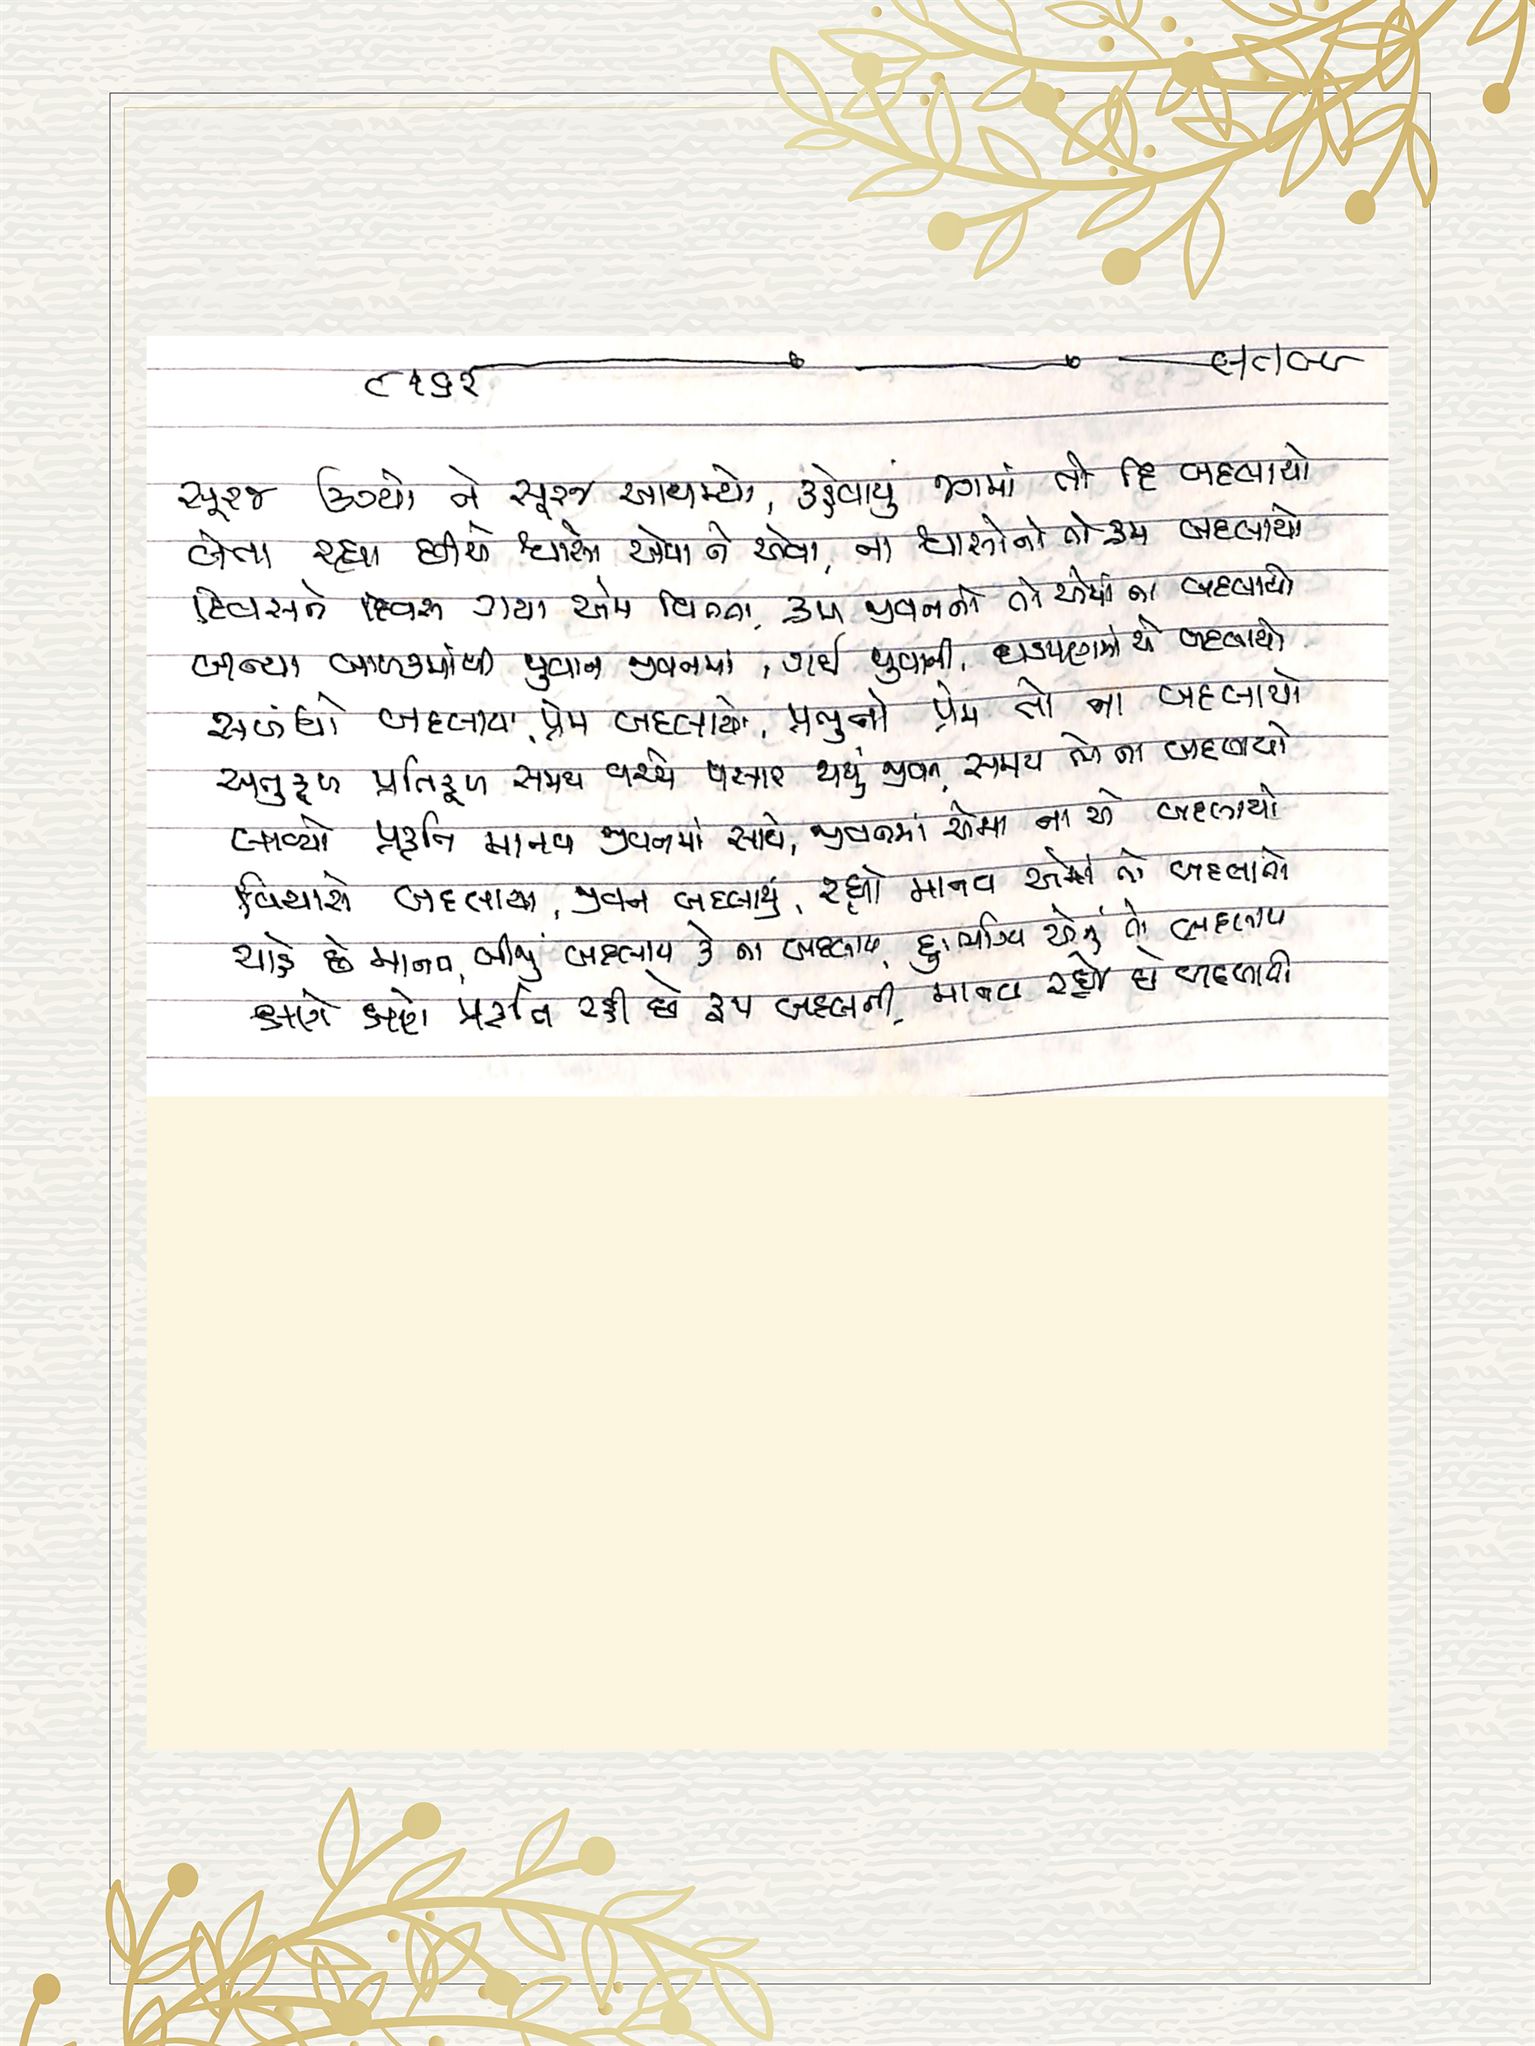 ૮૧૬૨ સતબ્ર
સૂરજ ઊગ્યો ને સૂરજ આથમ્યો, કહેવાયું જગમાં તો દિ બદલાયો
લેતા રહ્યા છીયે શ્વાસો એવા ને એવા, ના શ્વાસોનો તો ક્રમ બદલાયો
દિવસને દિવસ ગયા એમ વિતતા, ક્રમ જીવનનો તો એમાં ના બદલાયો
બન્યા બાળકમાંથી યુવાન જીવનમાં, ગઈ યુવાની, ઘડપણમાં એ બદલાયો
સબંધો બદલાયા, પ્રેમ બદલાયો, પ્રભુનો પ્રેમ તો ના બદલાયો
અનુકૂળ પ્રતિકૂળ સમય વચ્ચે પસાર થયું જીવન, સમય તો ના બદલાયો
લાવ્યો પ્રકૃતિ માનવ જીવનમાં સાથે, જીવનમાં એમા ના એ બદલાયો
વિચારો બદલાયા, જીવન બદલાયું, રહ્યો માનવ એમાં તો બદલાતો
ચાહે છે માનવ, બીજું બદલાય કે ના બદલાય, દુઃભાગ્ય એનું તો બદલાય
ક્ષણે ક્ષણે પ્રકૃતિ રહી છે રૂપ બદલતી, માનવ રહ્યો છે બદલાતો